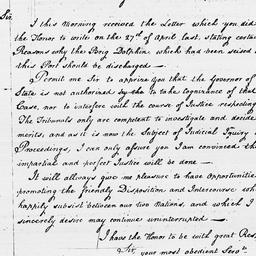 Sir,
I this Morning received the Letter which you did
the Honor to write on the 27th of April last, stating certain
Reasons why the Brig Dolphin which had been seized in
this Port should be discharged —
Permit me Sir to apprize you that the Governor of
State is not authorized by the to take Cognizance of that
Case, nor to interfere with the course of Justice respecting
The Tribunals only are competent to investigate and decide
merits, and as it is now the Subject of Judicial Inquiry
Proceedings, I can only assure you I am convinced th
impartial and perfect Justice will be done —
It will allways give me pleasure to have Opportunities
promoting the friendly Disposition and Intercourse wh
happily subsist between our two Nations, and which I
sincerely desire may continue uninterrupted —
I have the Honor to be with great Res
Sir,
your most obedient Servt.